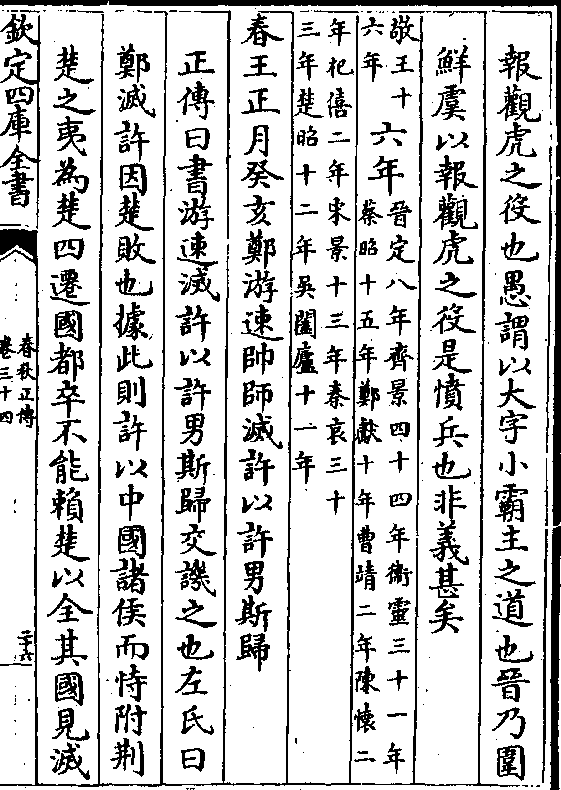 報觀虎之役也愚謂以大字小霸主之道也晉乃圍
鮮虞以報觀虎之役是憤兵也非義甚矣
敬王十六年
六年
晉定八年齊景四十四年衛靈三十一年
蔡昭十五年鄭獻十年曹靖二年陳懷二
年杞僖二年宋景十三年秦哀三十
三年楚昭十二年吳闔廬十一年
春王正月癸亥鄭游速帥師滅許以許男斯歸
正傳曰書游速滅許以許男斯歸交譏之也左氏曰
鄭滅許因楚敗也據此則許以中國諸侯而恃附荆
楚之夷為楚四遷國都卒不能賴楚以全其國見滅
欽定四庫全書
春秋正傳
卷三十四
二十六